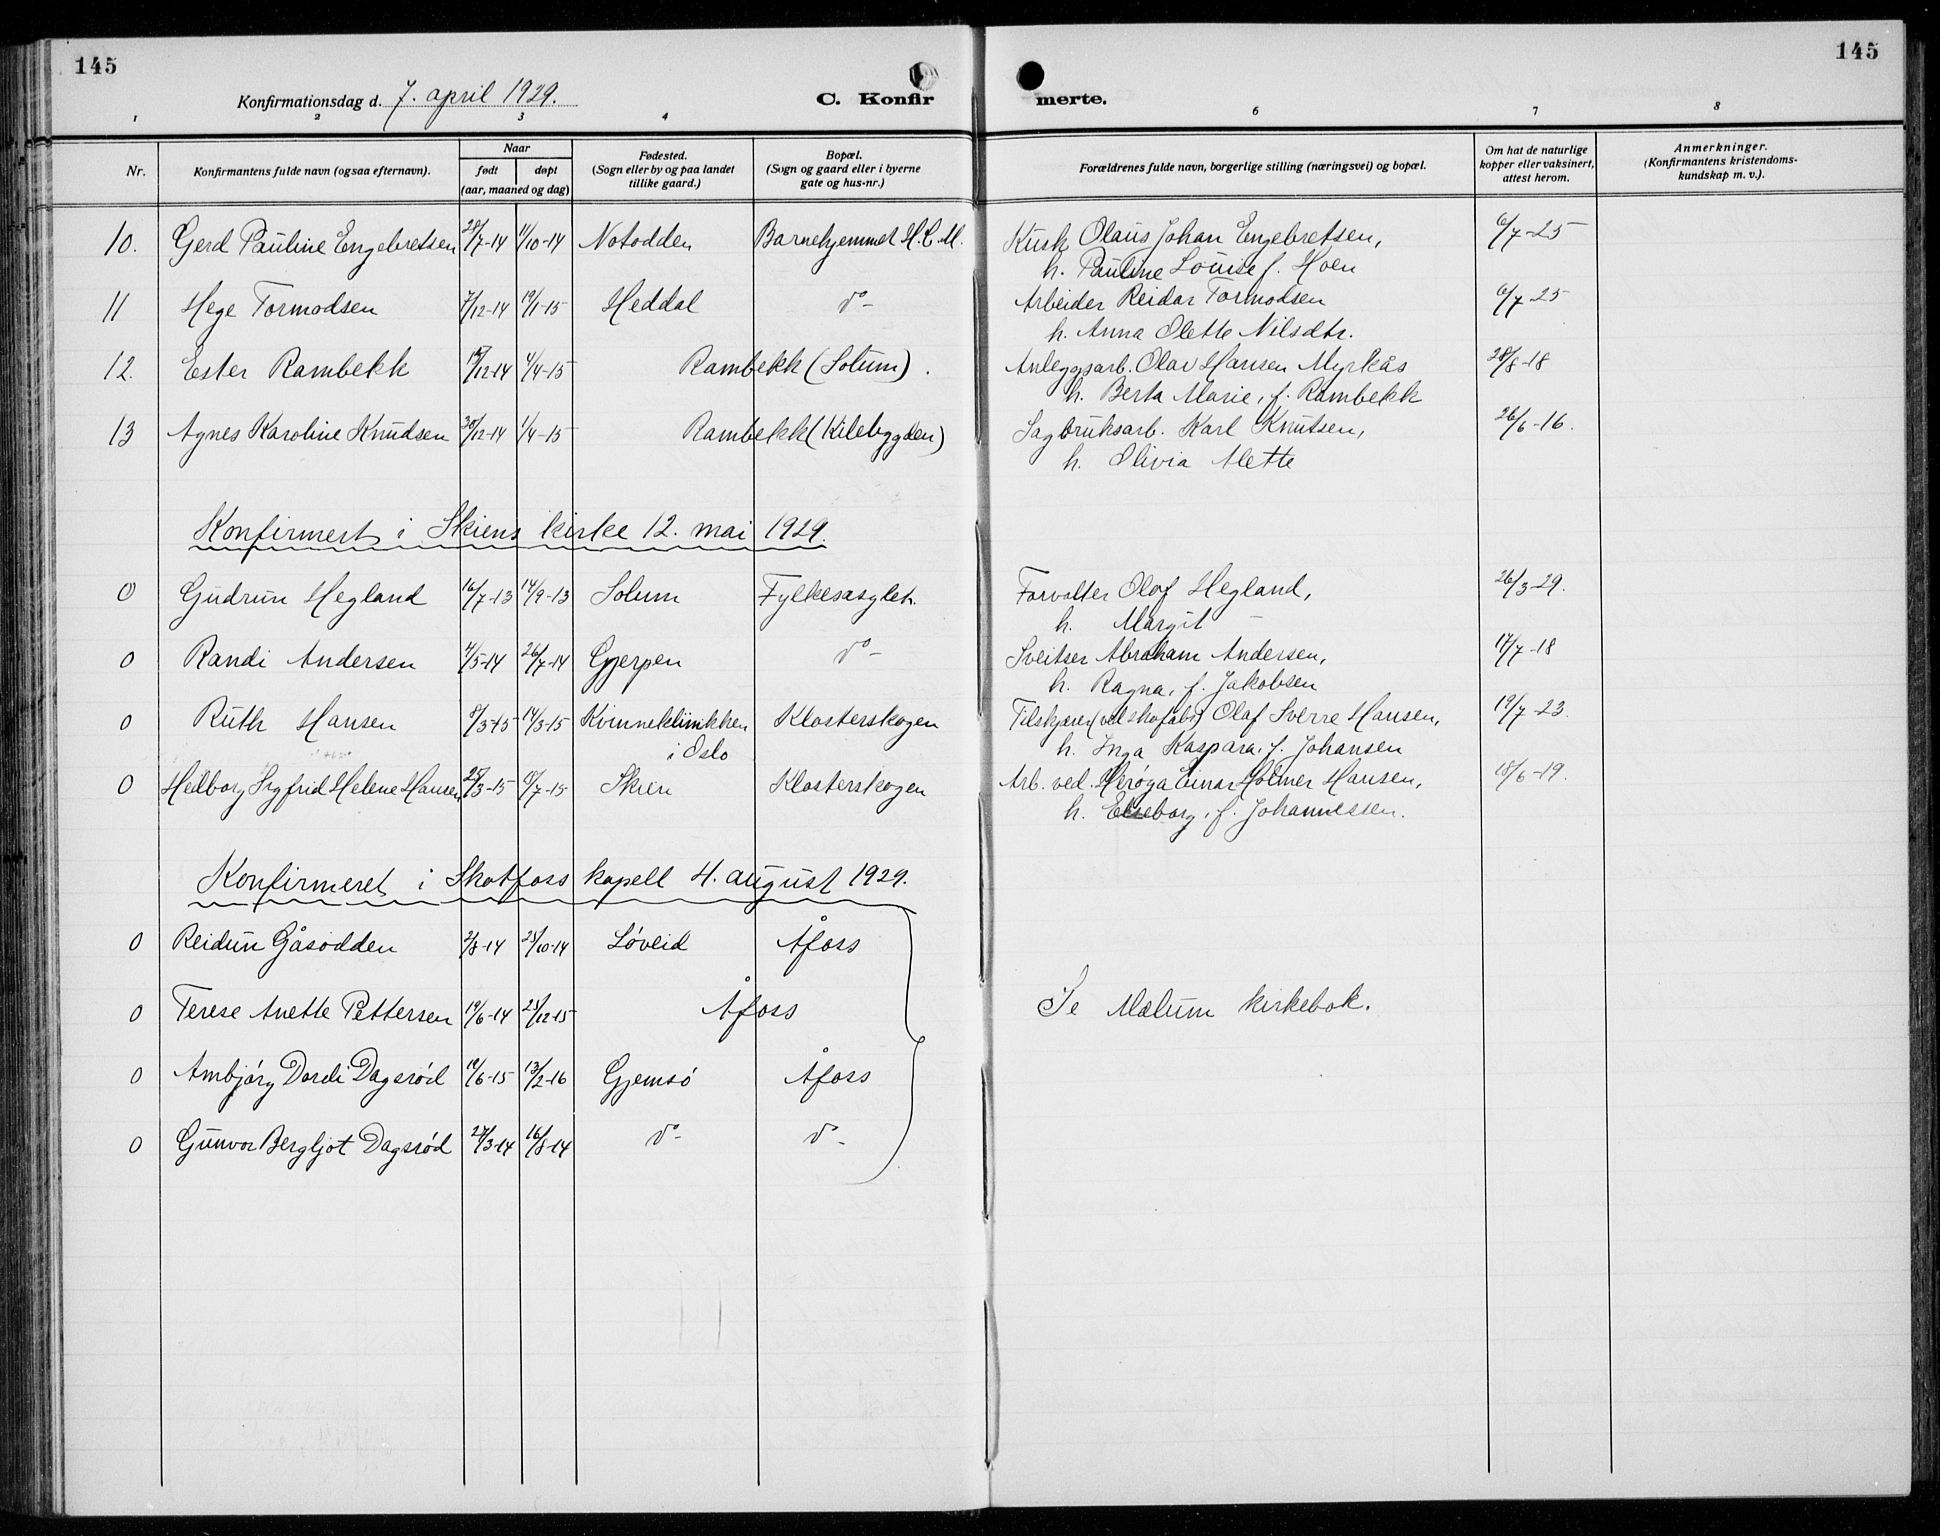 145
145
Konfirmationsdag d. 7. april 1929.
C. Konfirmerte.
1 2 3 4 6 7 8
Nr.
Konfirmantens fulde navn (ogsaa efternavn).
Naar
født
døpt
(aar, maaned og dag)
Fødested.
(Sogn eller by og paa landet
tillike gaard.)
Bopæl.
(Sogn og gaard eller i byerne
gate og hus-nr.)
Forældrenes fulde navn, borgerlige stilling (næringsvei) og bopæl.
Om hat de naturlige
kopper eller vaksinert,
attest herom.
Anmerkninger.
(Konfirmantens kristendoms-
kundskap m. v.).
10. Gerd Pauline Engebretsen 29/7-14 11/10-14 Notodden Barnehjemmet H.C.M. Kusk Olaus Johan Engebretsen, 6/7-25
h. Pauline Louise f. Hoen
11 Hege Tormodsen 7/12-14 19/1-15 Heddal do- Arbeider Reidar Tormodsen 6/7 25
h. Anna Olette Nilsdtr.
12. Ester Rambekk /12-14 4/4-15 Rambekk (Solum). Anleggsarb. Olav Hansen Myrkås 28/8-18
h. Berta Marie, f. Rambekk
13 Agnes Karoline Knudsen 30/12-14 1/4-15 Rambekk (Kilebygden) Sagbruksarb. Karl Knutsen, 26/6-16.
h. Olivia Mette
Konfirmert i Skiens kirke 12. mai 1929.
0 Gudrun Hegland 16/7-13 14/9-13 Solum Fylkesasylet. Forvalter Olaf Hegland, 26/3-29.
h. Margit -
0 Randi Andersen 4/5-14 26/7-14 Gjerpen do- Sveitser Abraham Andersen, 17/7-18
h. Ragna, f. Jakobsen
0 Ruth Hansen 8/3-15 14/3-15 Kvinneklinikken Klosterskogen Tilskjærer (ved skofabr) Olaf Sverre Hansen, 19/7-23.
i Oslo h. Inga Kaspara, f. Johansen
0 Hedborg Sigfrid Helene Hansen 25/3-15 8/7-15 Skien Klosterskogen Arb. ved. Herøya Einar Holmer Hansen, 18/6-19.
h. Elseborg, f. Johannessen.
Konfirmeret i Skotfoss kapell 4. august 1929.
0 Reidun Gåsodden 2/8-14 25/10-14 Løveid Åfoss
0 Terese Anette Pettersen 19/6-14 25/12-15 Åfoss Se Mælum kirkebok.
0 Ambjørg Dordi Dagsrød 19/6-15 13/2-16 Gjemsø Åfoss
0 Gunvor Bergljot Dagsrød 27/3-14 16/8-14 do- do-